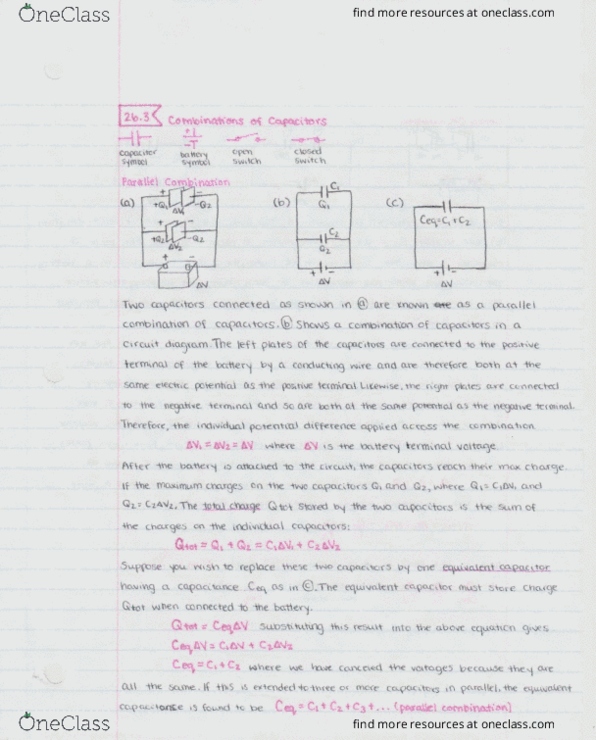 OneClass
find more resources at oneclass.com
26.3 Combinations of Capacitors
capacitor symbol
battery symbol
open switch
closed switch
Parallel Combination
(a) +Q1 -Q2 ΔV1
+Q2 -Q2 ΔV2
+ - ΔV
(b) C1 Q1
C2 Q2
+ - ΔV
(c) Ceq=C1+C2
+ - ΔV
Two capacitors connected as shown in ⓐ are known are as a parallel
combination of capacitors. ⓑ Shows a combination of capacitors in a
circuit diagram. The left plates of the capacitors are connected to the positive
terminal of the battery by a conducting wire and are therefore both at the
same electric potential as the positive terminal. Likewise, the right plates are connected
to the negative terminal and so are both at the same potential as the negative terminal.
Therefore, the individual potential difference applied across the combination
ΔV1 = ΔV2 = ΔV where ΔV is the battery terminal voltage
After the battery is attached to the circuit, the capacitors reach their max charge.
If the maximum charges on the two capacitors Q1 and Q2, where Q1 = C1ΔV1 and
Q2 = C2ΔV2. The total charge Qtot stored by the two capacitors is the sum of
the charges on the individual capacitors:
Qtot = Q1 + Q2 = C1ΔV1 + C2ΔV2
Suppose you wish to replace these two capacitors by one equivalent capacitor
having a capacitance Ceq as in ⓒ. The equivalent capacitor must store charge
Qtot when connected to the battery.
Qtot = CeqΔV substituting this result into the above equation gives
CeqΔV = C1ΔV + C2ΔV2
Ceq = C1 + C2 where we have canceled the voltages because they are
all the same. If this is extended to three or more capacitors in parallel, the equivalent
capacitance is found to be Ceq = C1 + C2 + C3 + ... (parallel combination)
OneClass
find more resources at oneclass.com